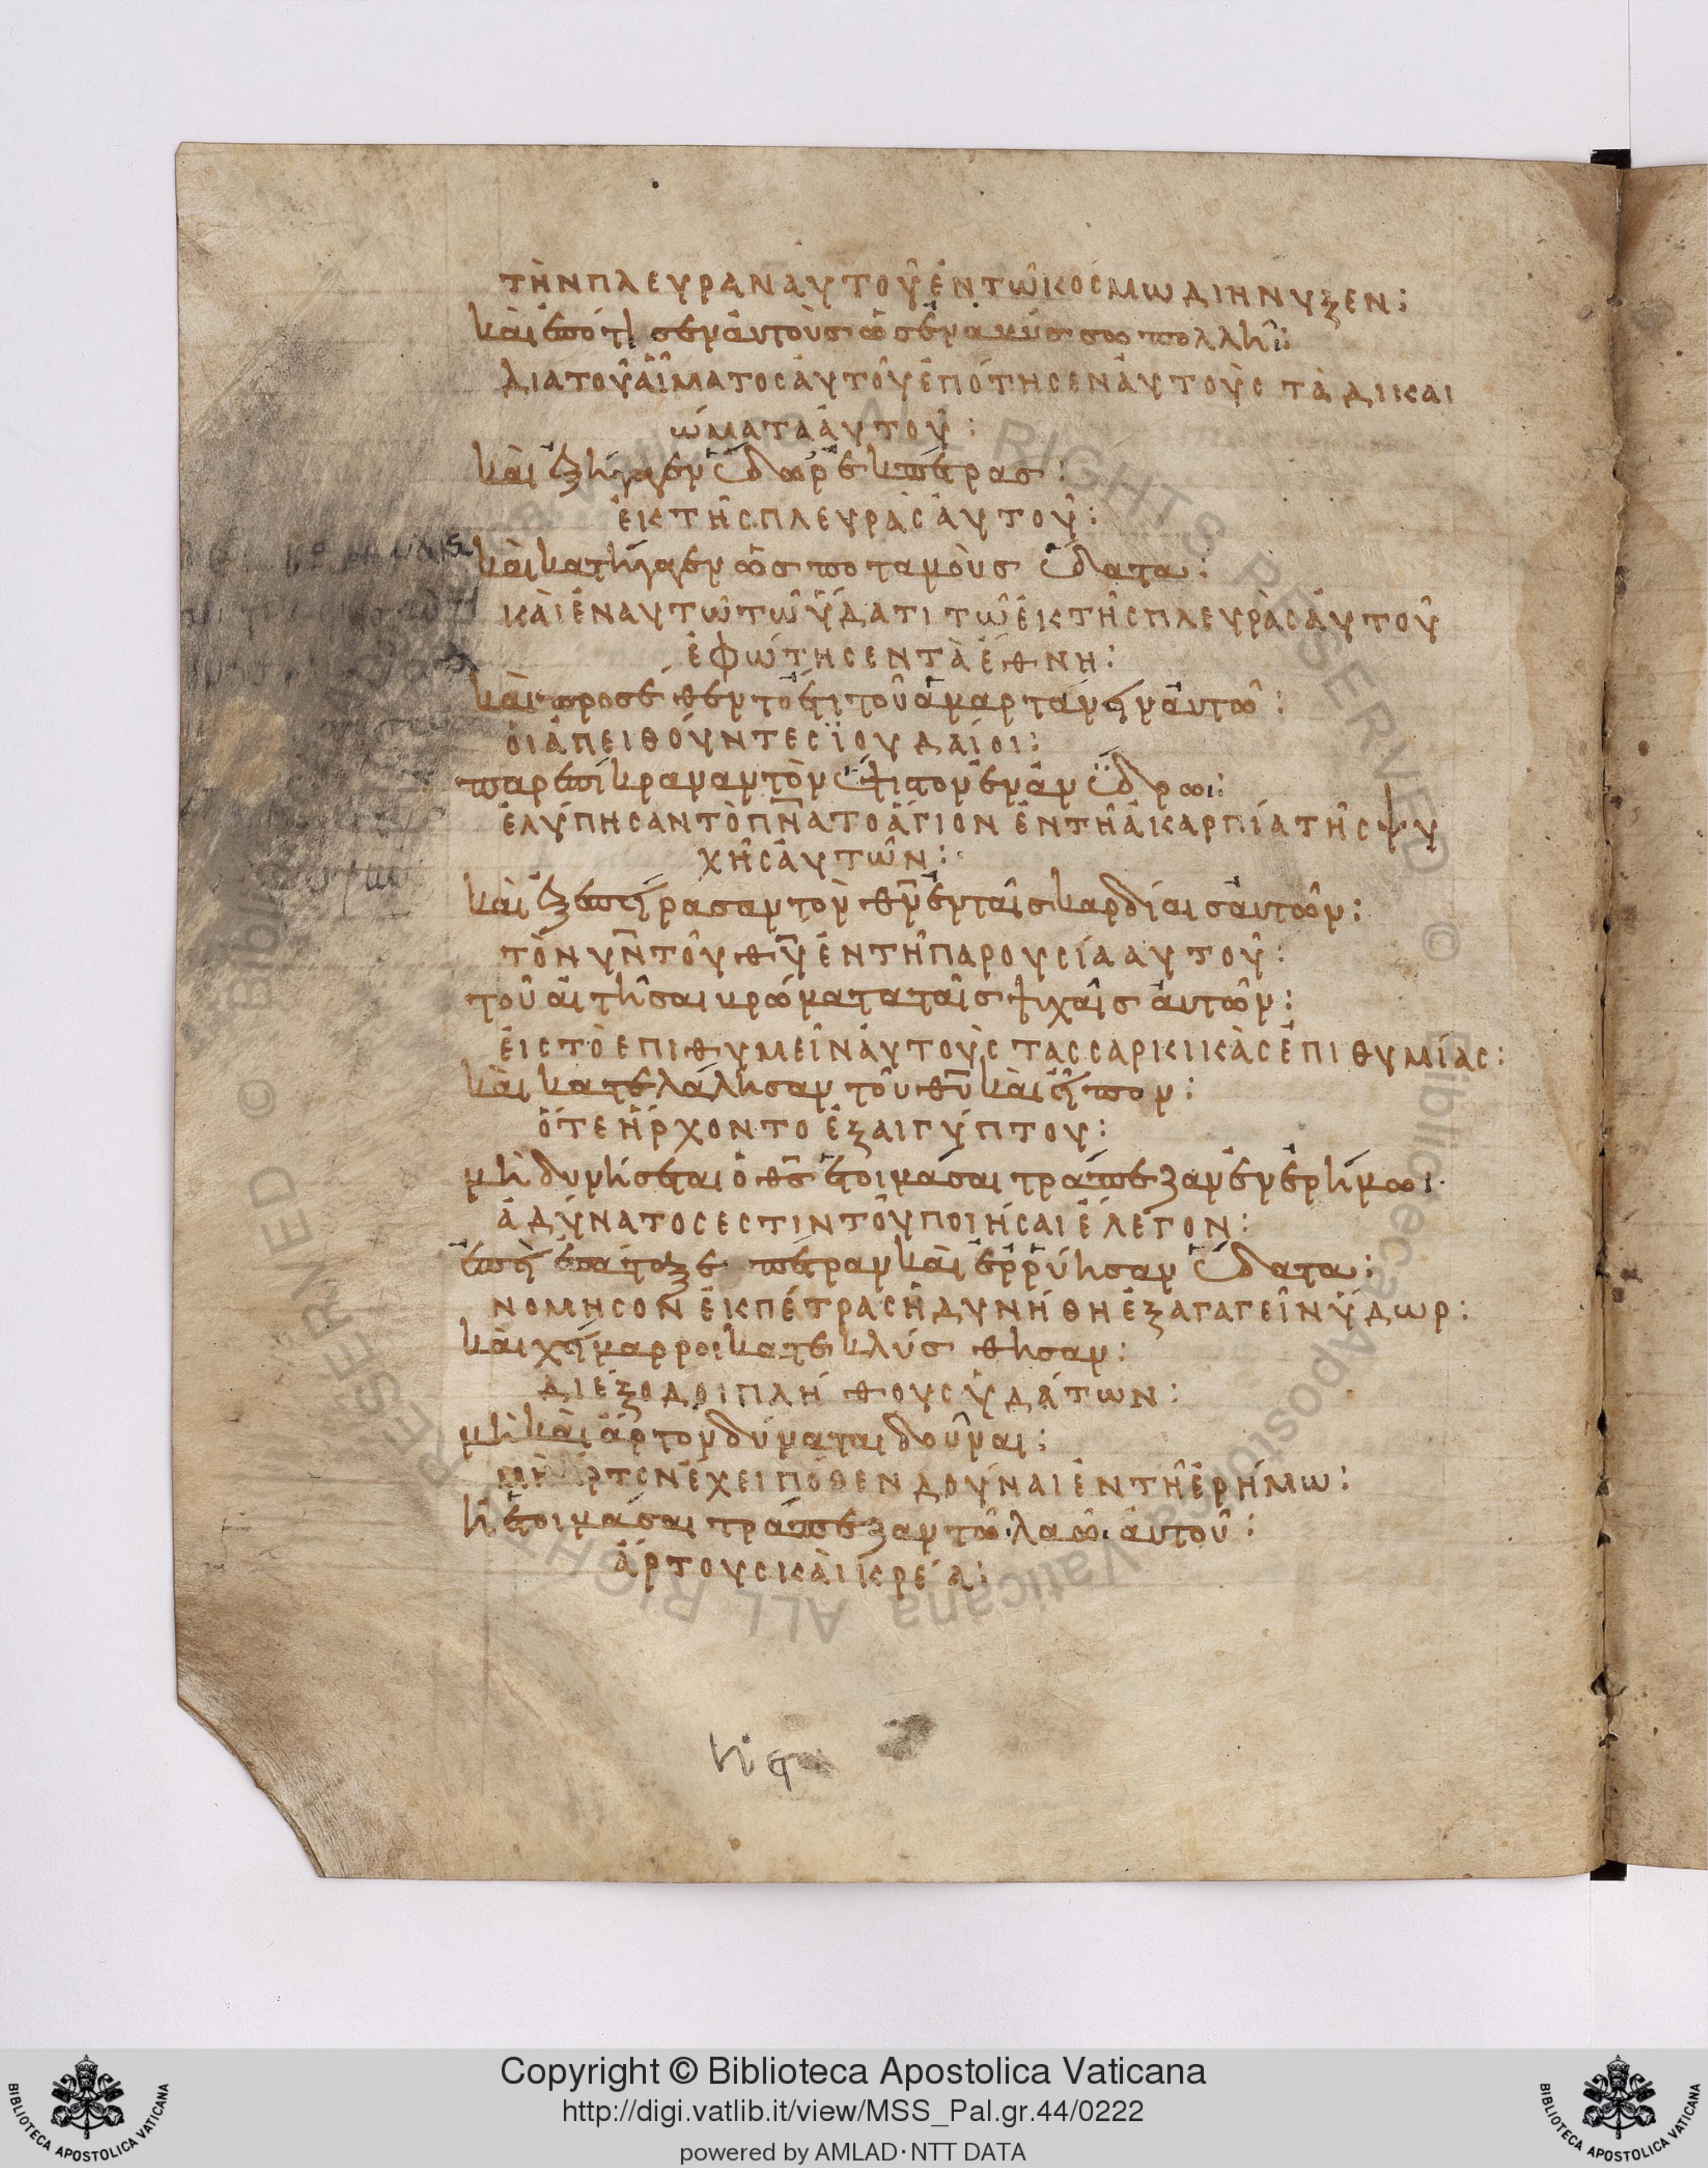 τὴν πλευραν αυτοῦ ἐν τῶ κοσμω διηνυξεν:
καὶ ἐπότισεν ἀυτοὺς ὡς ἐν ἀβύσσω πολλῆι:
δια τοῦ ἅιματος ἀυτοῦ ἐπότησεν ἀυτοὺς τὰ δικαι
ώματα ἀυτοῦ:
καὶ ἐξήγαγεν ὕδωρ ἐκ πέτρας:
ἐκ τῆς πλευρὰς ἀυτοῦ:
καὶ κατήγαγεν ὡς ποταμοὺς ὕδατα:
κὰι ἐν αυτῶ τῶ ὕδατι τῶ ἐκ τῆς πλευρὰς ἀυτοῦ
ἐφώτησεν τὰ ἔθνη:
καὶ προσέθεντο ἔτι τοῦ ἁμαρτάνειν ἀυτῶ:
ὁι ἀπειθόυντες ϊουδαίοι:
παρεπίκραναν τὸν ὕψιστον ἐν ἀνύδρωι:
ἐλύπησαν τὸ πνα το ἅγιον ἐν τῆ ἀκαρπία τῆς ψυ
χῆς ἀυτῶν:
καὶ ἐξεπείρασαν τὸν θν ἐν ταῖς καρδίαις ἀυτῶν:
τὸν υν τοῦ θυ ἐν τῆ παρουσία αυτοῦ:
τοῦ αἰτῆσαι βρώματα ταῖς ψυχαῖς ἀυτῶν:
ἐις τὸ επιθυμεῖν ἀυτοὺς τας σαρκικὰς ἐπιθυμίας:
καὶ κατελάλησαν τοῦ θυ καὶ εἶπον:
ὅτε ἤρχοντο ἐξ αιγύπτου:
μὴ δυνήσεται ὁ θς ἑτοιμάσαι τράπεζαν ἐν ἐρήμωι·
ἀδύνατος εστιν τοῦ ποιήσαι ἔλεγον:
ἐπεὶ ἐπάταξε πέτραν καὶ ἐρρύησαν ὕδατα:
νομησον ἐκ πέτρας ἠδυνήθη ἐξαγαγεῖν ὕδωρ:
καὶ χείμαρροι κατεκλύσθησαν:
διέξοδοι πλήθους ὑδάτων:
μὴ καὶ ἄρτον δύναται δοῦναι:
μὴ ἄρτον ἔχει πόθεν δοῦναι ἐν τῆ ἐρήμω:
ἢ ἑτοιμάσαι τράπεζαν τῶ λαῶ ἀυτοῦ:
ἄρτους κὰι κρέα:
Copyright © Biblioteca Apostolica Vaticana
http://digi.vatlib.it/view/MSS_Pal.gr.44/0222
powered by AMLAD·NTT DATA